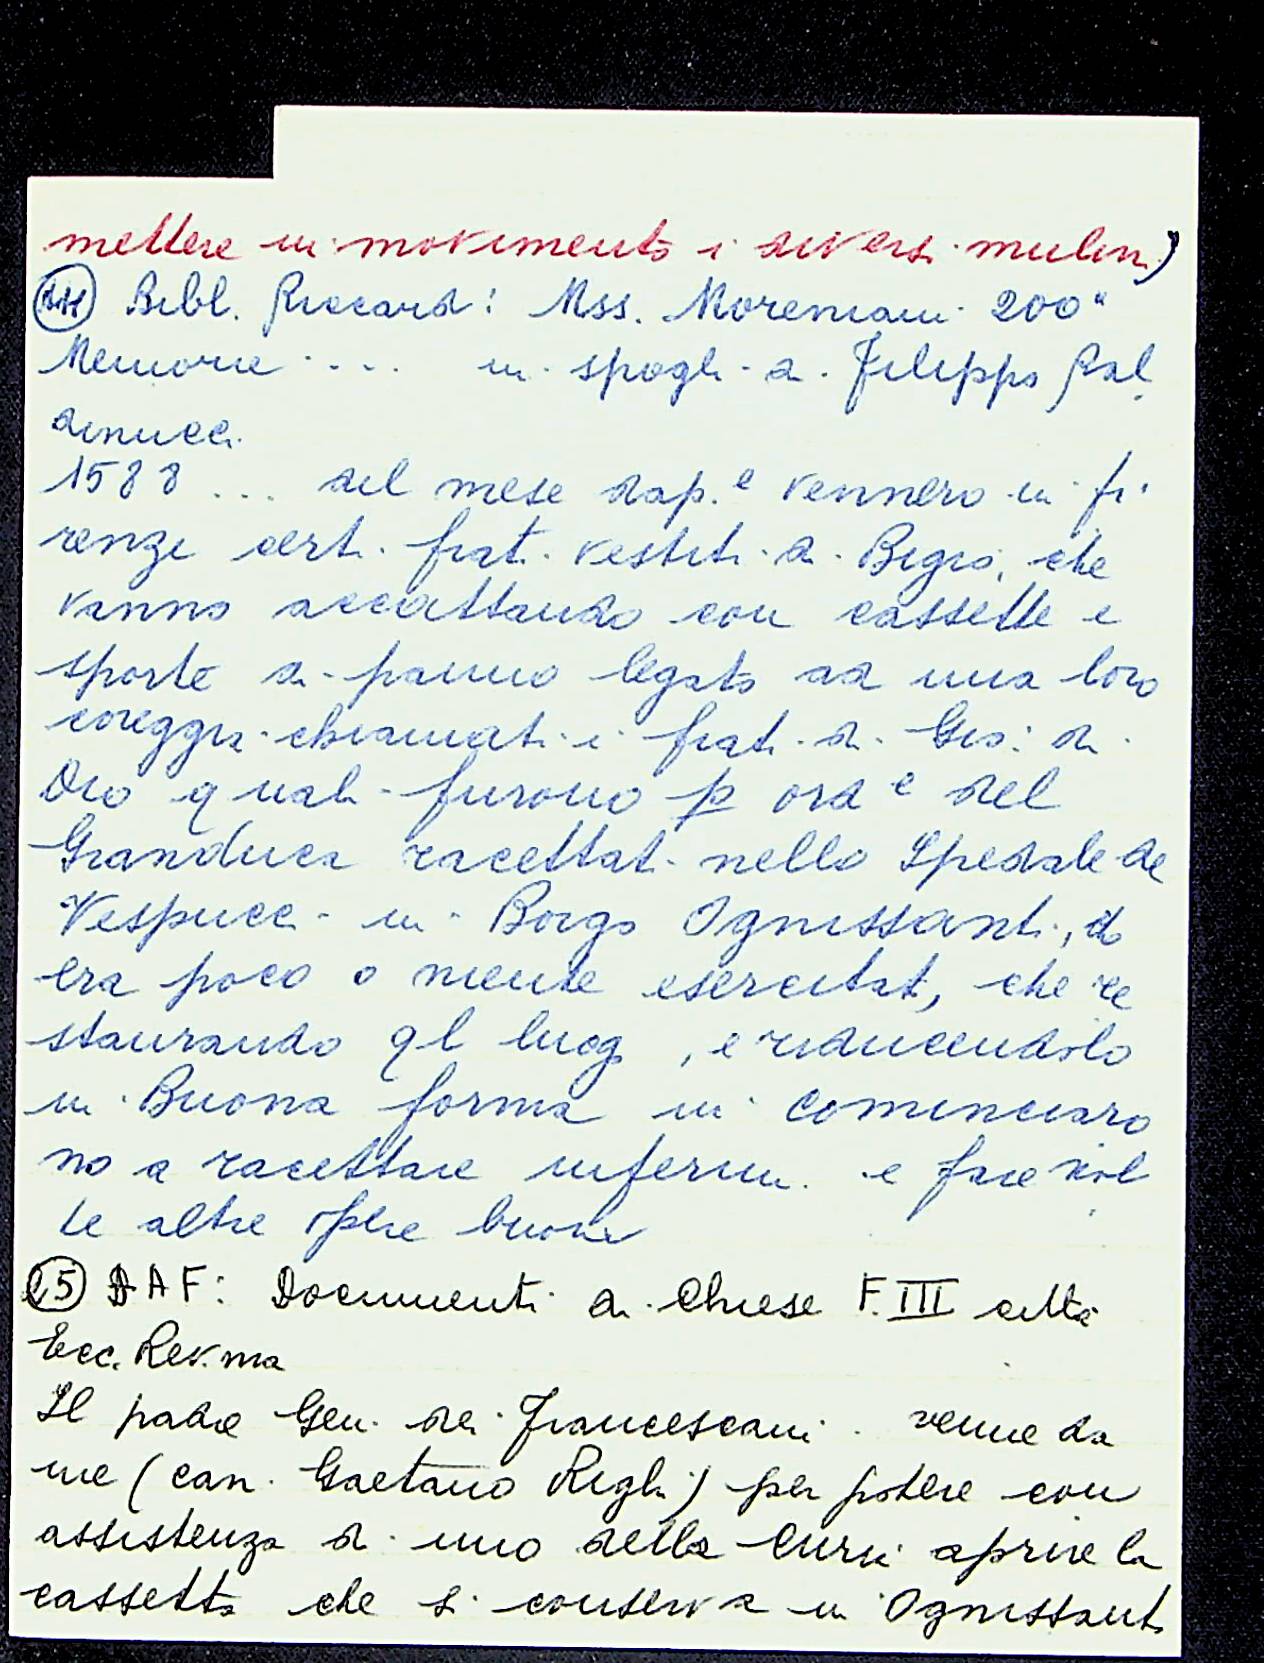 mettere in movimento i diversi mulini)
Bibl. Riccardi: Mss. Moreniani 200"
Memorie . . . in spogli di Filippo Bal
dinucci
1588 ... del mese dap.e vennero in fi
renze certi frati vestiti di Bigio, che
vanno accattando con cassette e
sporte di panno legato ad una loro
coreggia chiamati i frati di Gio: di
Dio quali furono p ord e del
Granduca racettati nello Spedale de
Vespucci in Borgo Ognissanti, do
era poco o niente esercitat, che re
staurando ql luog , e riducendolo
in Buona forma in cominciaro
no a racettare infermi e fare mol
te altre opere buone
25 AAF: Documenti di Chiese F. III città
Ecc. Rev.ma
Il padre Gen. dei Francescani venne da
me (can. Gaetano Righi) per potere con
assistenza di uno della Curia aprire la
cassetta che si conserva in Ognissanti